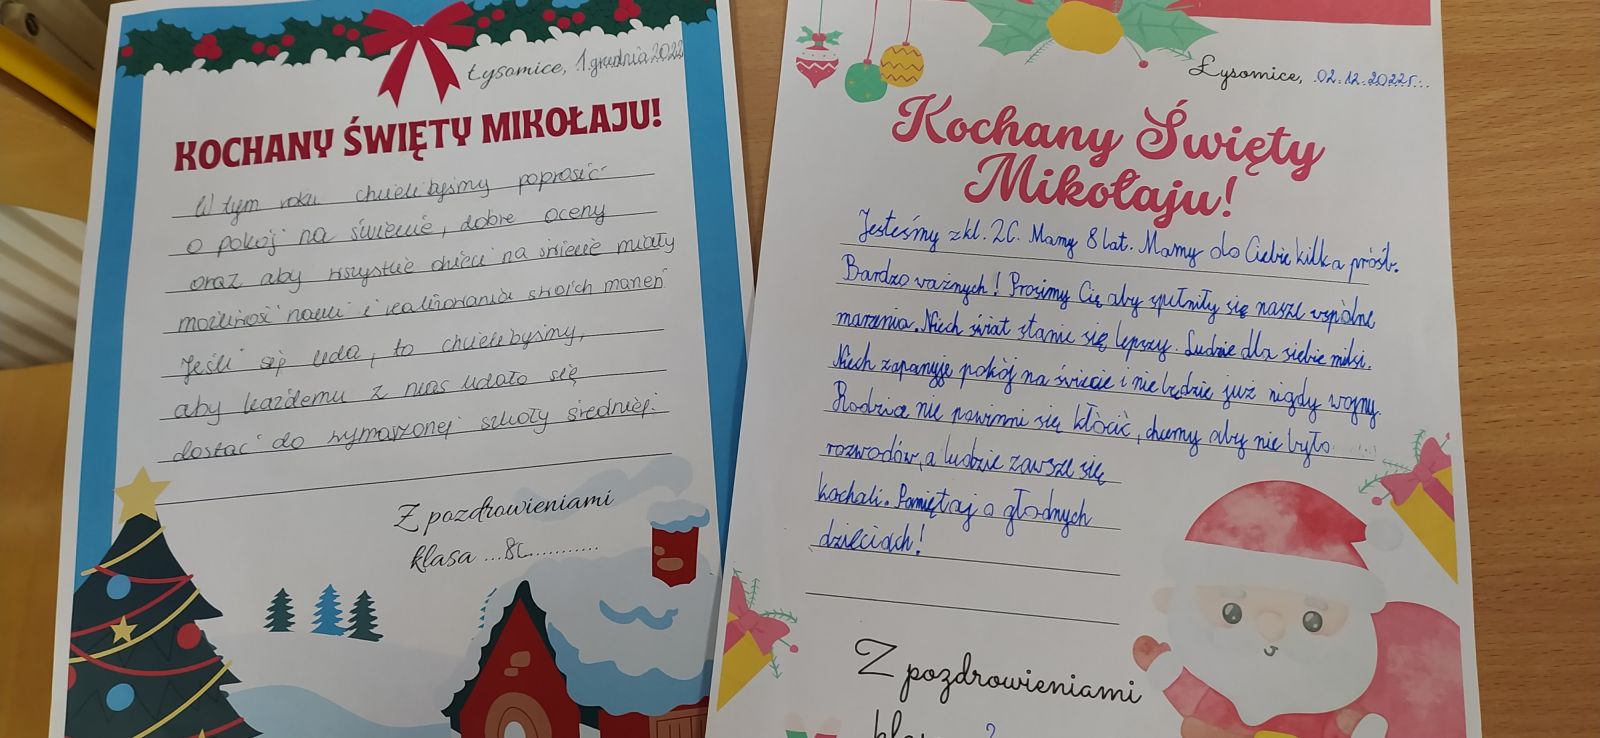 Łysomice, 1 grudnia 2022
KOCHANY ŚWIĘTY MIKOŁAJU!
W tym roku chcielibyśmy poprosić
o pokój na świecie, dobre oceny
oraz aby wszystkie dzieci na świecie miały
możliwość nauki i realizowania swoich marzeń
Jeśli się uda, to chcielibyśmy,
aby każdemu z nas udało się
dostać do wymarzonej szkoły średniej.
Z pozdrowieniami
klasa ...8c...........
Łysomice, 02.12.2022r...
Kochany Święty
Mikołaju!
Jesteśmy z kl. 2C. Mamy 8 lat. Mamy do Ciebie kilka próśb.
Bardzo ważnych! Prosimy Cię aby spełniły się nasze wspólne
marzenia. Niech świat stanie się lepszy. Ludzie dla siebie milsi.
Niech zapanuje pokój na świecie i nie będzie już nigdy wojny.
Rodzice nie powinni się kłócić, chcemy aby nie było
rozwodów, a ludzie zawsze się
kochali. Pamiętaj o głodnych
dzieciach!
Z pozdrowieniami